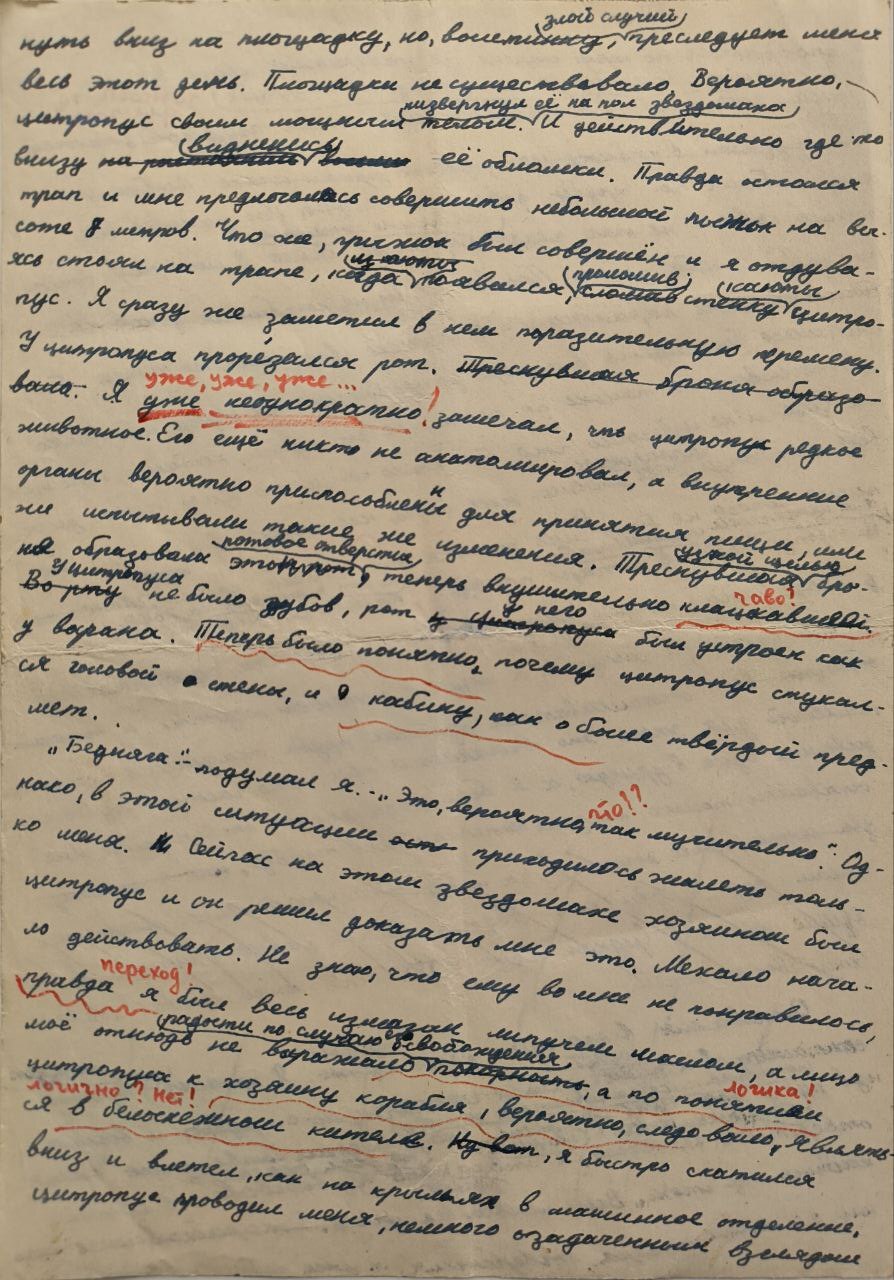 злой случай
нуть вниз на площадку, но, воистинну, преследует меня
весь этот день. Площадки не существовало. Вероятно,
низвергнул её на пол звездомака
цитропус своим мощным телом. И действительно где-то
виднелись
внизу на её обломки. Правда остался
трап и мне предлогалось совершить небольшой пыжок на вы-
соте 8 метров. Что же, прыжок был совершён и я отдува-
ясь стоял на трапе, когда появился, проломив; сломав стенку каюты цитро-
пус. Я сразу же заметил в нем поразительную перемену.
У цитропуса прорезался рот. Треснувшая броня образо-
уже, уже, уже...
вала. Я уже неоднократно! замечал, что цитропус редкое
животное. Его ещё никто не анатомировал, а внутренние
органы вероятно приспособленны для принятия пищи, или
же испытывали такие же изменения. Треснувшая узкой щелью бро-
ротовое отверстие
ня образовала этот рот, теперь внушительно клацкавший.
чаво!
У цитропуса
Во рту не было зубов, рот у цитропуса у него был устроен как
у варана. Теперь было понятно, почему цитропус стукал-
ся головой о стены, и о кабину, как о более твёрдый пред-
мет.
„Бедняга"- подумал я. - „Это, вероятно, так мучительно". Од-
что!!
нако, в этой ситуации приходилось жалеть толь-
ко меня. Сейчас на этом звездомаке хозяином был
цитропус и он решил доказать мне это. Мекало нача-
ло действовать. Не знаю, что ему во мне не понравилось,
переход!
правда я был весь измазан липучем маслом, а лицо
радости по случаю его освобождения
моё отнюдь не выражало покорность, а по понятиям
логика!
цитропуса к хозяину корабля, вероятно, следовало, являть-
логично? Нет!
ся в белоснежном кителе. Ну вот, я быстро скатился
вниз и влетел, как на крыльях в машинное отделение,
цитропус проводил меня, немного озадаченным взглядом